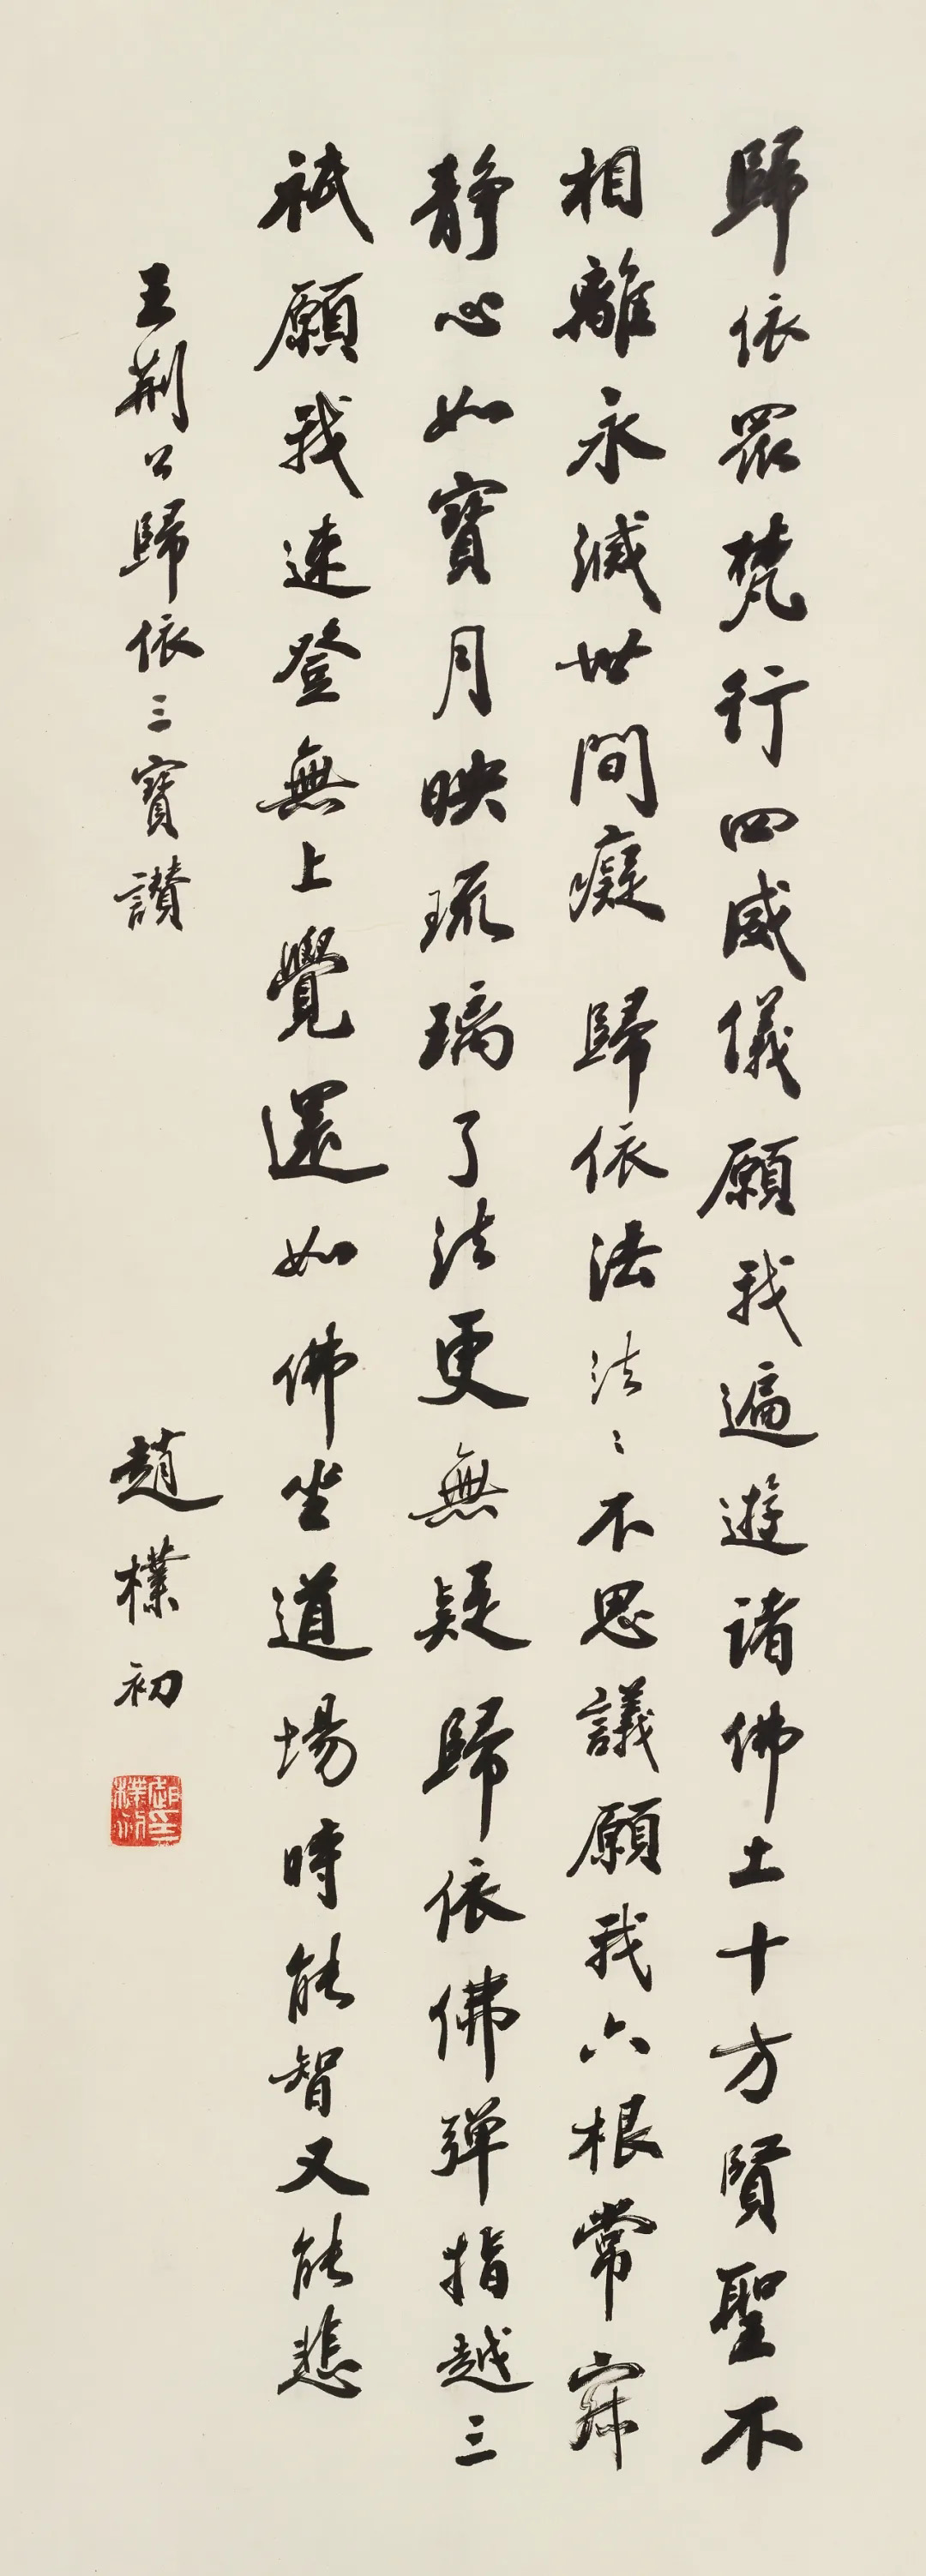 歸依眾梵行四威儀願我遍遊諸佛土十方賢聖不
相離永滅世間癡歸依法法〻不思議願我六根常寂
靜心如寶月映琉璃了法更無疑歸依佛彈指越三
祇願我速登無上覺還如佛坐道場時能智又能悲
王荊公歸依三寶讚
趙樸初
趙樸初印